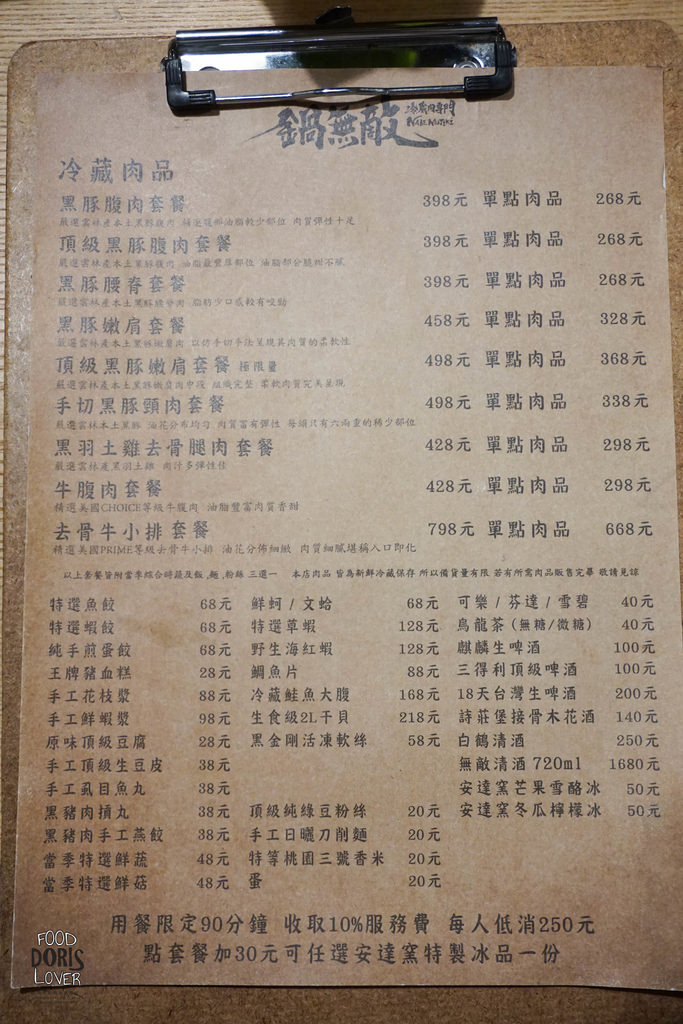 鍋無敵
冷藏肉品
黑豚腹肉套餐 398元 單點肉品 268元
頂級黑豚腹肉套餐 398元 單點肉品 268元
嚴選雲林產本土黑豚腹肉 油脂最豐厚部位 油脂部分脆甜不膩
黑豚腰脊套餐 398元 單點肉品 268元
嚴選雲林產本土黑豚腰脊肉 脂肪少口感較有咬勁
黑豚嫩肩套餐 458元 單點肉品 328元
嚴選雲林產本土黑豚嫩肩肉 以仿手切手法呈現其肉質的柔軟性
頂級黑豚嫩肩套餐 極限量 498元 單點肉品 368元
嚴選雲林產本土黑豚嫩肩肉中段 組織完整 柔軟肉質完美呈現
手切黑豚頸肉套餐 498元 單點肉品 338元
嚴選雲林本土黑豚 油花分布均勻 肉質富有彈性 每頭只有六兩重的稀少部位
黑羽土雞去骨腿肉套餐 428元 單點肉品 298元
嚴選雲林產黑羽土雞 肉汁多彈性佳
牛腹肉套餐 428元 單點肉品 298元
精選美國CHOICE等級牛腹肉 油脂豐富肉質香甜
去骨牛小排套餐 798元 單點肉品 668元
精選美國PRIME等級去骨牛小排 油花分佈細緻 肉質細膩堪稱入口即化
以上套餐皆附當季綜合時蔬及飯,麵,粉絲 三選一 本店肉品 皆為新鮮冷藏保存 所以備貨量有限 若有所需肉品販售完畢 敬請見諒
特選魚餃 68元 鮮蚵/文蛤 68元 可樂/芬達/雪碧 40元
特選蝦餃 68元 特選草蝦 128元 烏龍茶(無糖/微糖) 40元
純手煎蛋餃 68元 野生海紅蝦 128元 麒麟生啤酒 100元
王牌豬血糕 28元 鯛魚片 88元 三得利頂級啤酒 100元
手工花枝漿 88元 冷藏鮭魚大腹 168元 18天台灣生啤酒 200元
手工鮮蝦漿 98元 生食級2L干貝 218元 詩莊堡接骨木花酒 140元
原味頂級豆腐 28元 黑金剛活凍軟絲 58元 白鶴清酒 250元
手工頂級生豆皮 38元 無敵清酒 720ml 1680元
手工虱目魚丸 38元 安達窯芒果雪酪冰 50元
黑豬肉摃丸 38元 頂級純綠豆粉絲 20元 安達窯冬瓜檸檬冰 50元
黑豬肉手工燕餃 38元 手工日曬刀削麵 20元
當季特選鮮蔬 48元 特等桃園三號香米 20元
當季特選鮮菇 48元 蛋 20元
用餐限定90分鐘 收取10%服務費 每人低消250元
點套餐加30元可任選安達窯特製冰品一份
FOOD
DORIS
LOVER